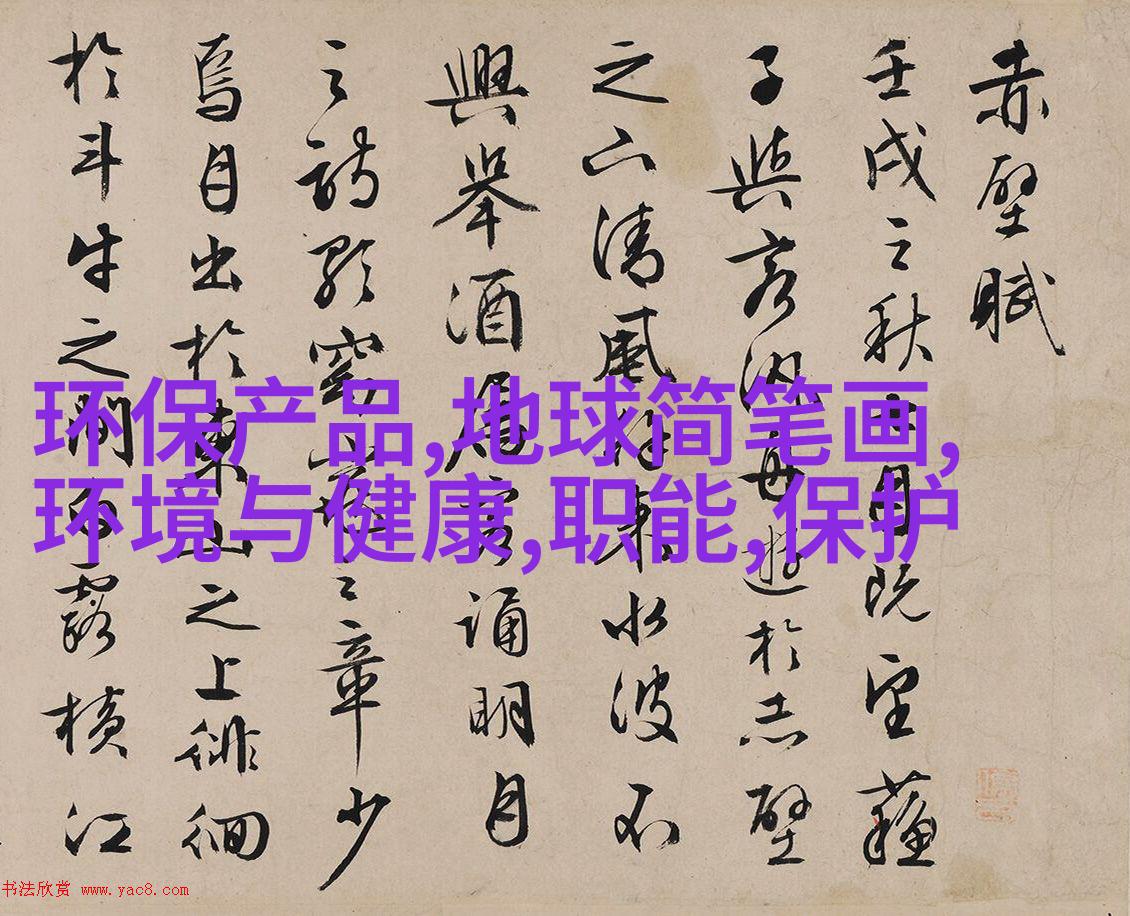 赤壁賦
壬戌之秋七月既望蘇
子與客汎舟遊於赤壁
之下清風徐來水波不
興舉酒屬客誦明月
之詩歌窈窕之章少
焉月出於東山之上徘徊
於斗牛之間白露橫江
环保产品,地球简笔画,
环境与健康,职能,保护
书法欣赏 www.yac8.com